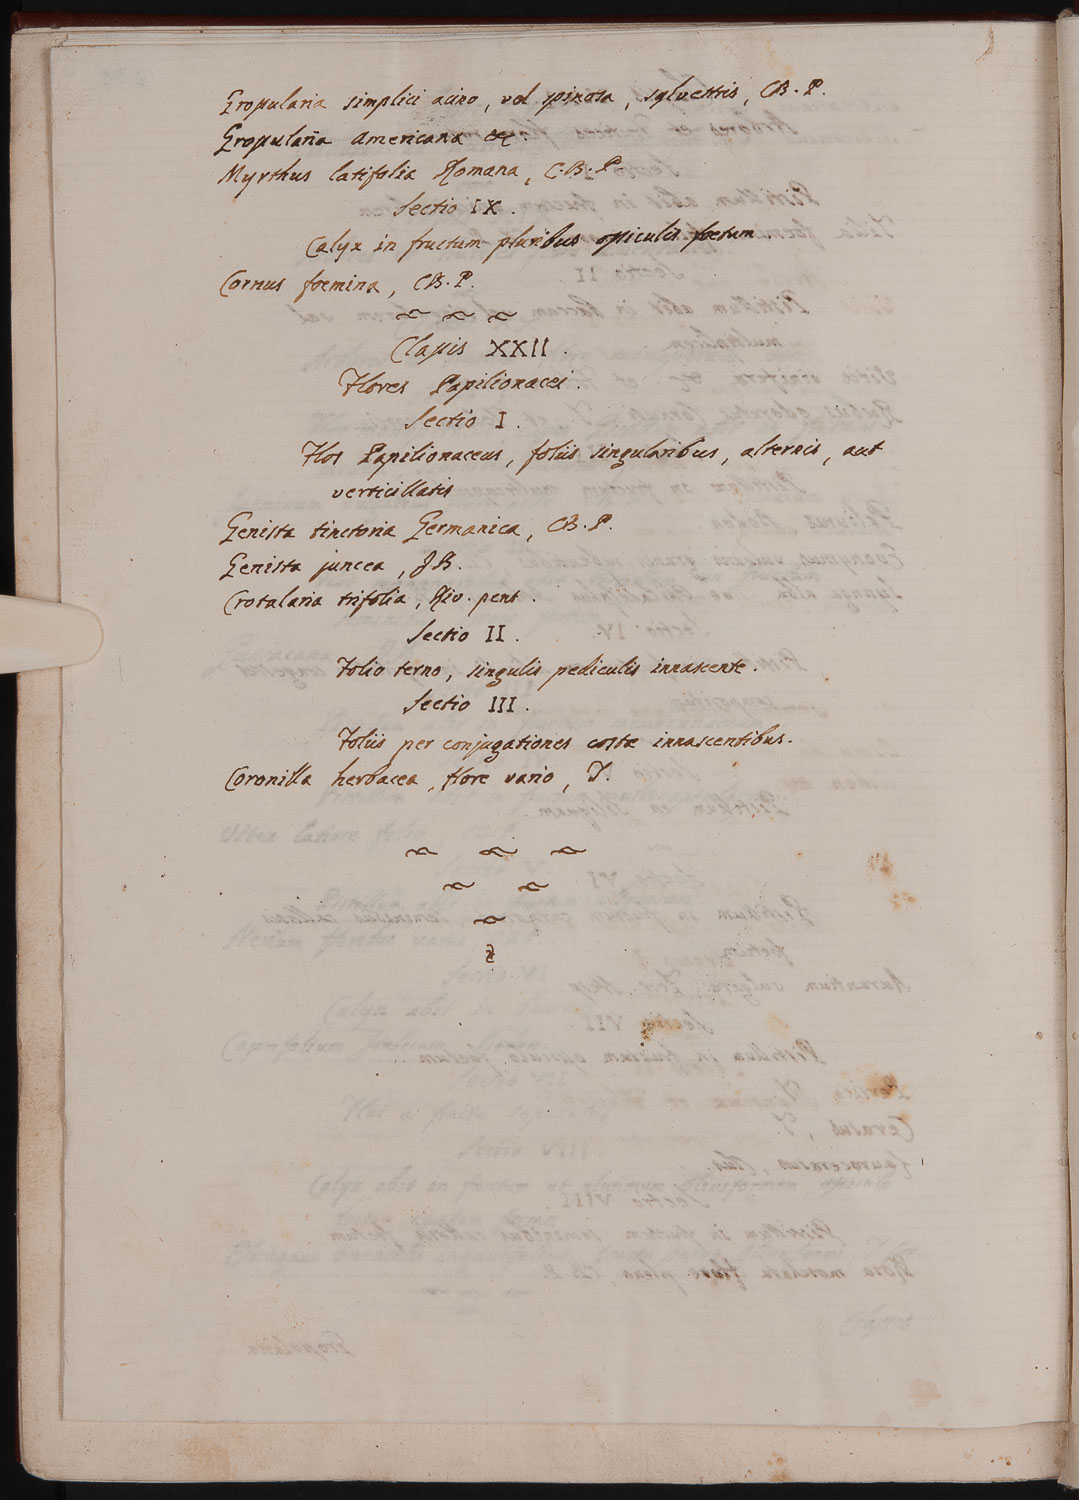 Grossularia simplici acino, vel spinosa, sylvestris, CB. P.
Grossularia Americana &c.
Myrthus latifolia Romana, C.B.P.
Sectio IX.
Calyx in fructum pluribus ossiculis foetum.
Cornus foemina, CB. P.
Classis XXII.
Flores Papilionacei.
Sectio I.
Flos Papilionaceus, foliis singularibus, alternis, aut
verticillatis
Genista tinctoria Germanica, CB. P.
Genista juncea, JB.
Crotalaria trifolia, Riv. pent.
Sectio II.
Folio terno, singulis pediculis innascente.
Sectio III.
Foliis per conjugationes costæ innascentibus.
Coronilla herbacea, flore vario, T.